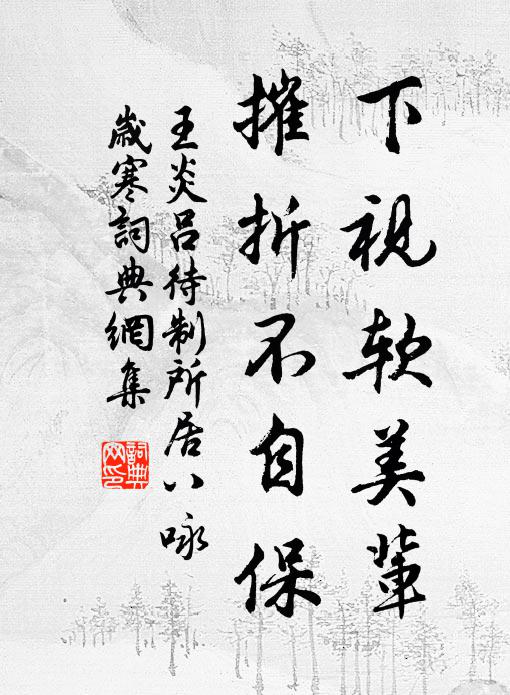 下視軟美輩
摧折不自保
王炎呂待制所居八咏
歲寒詞典網集
詞典網印